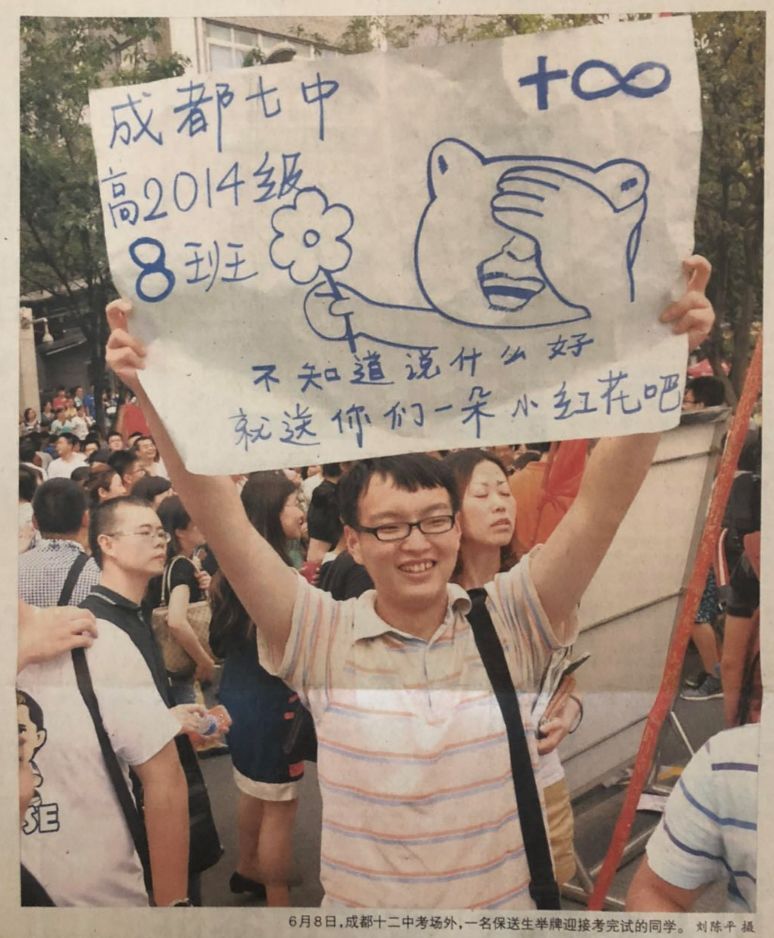 成都七中
+∞
高2014级
8班
不知道说什么好
就送你们一朵小红花吧
SE
6月8日,成都十二中考场外,一名保送生举牌迎接考完试的同学。 刘陈平 摄